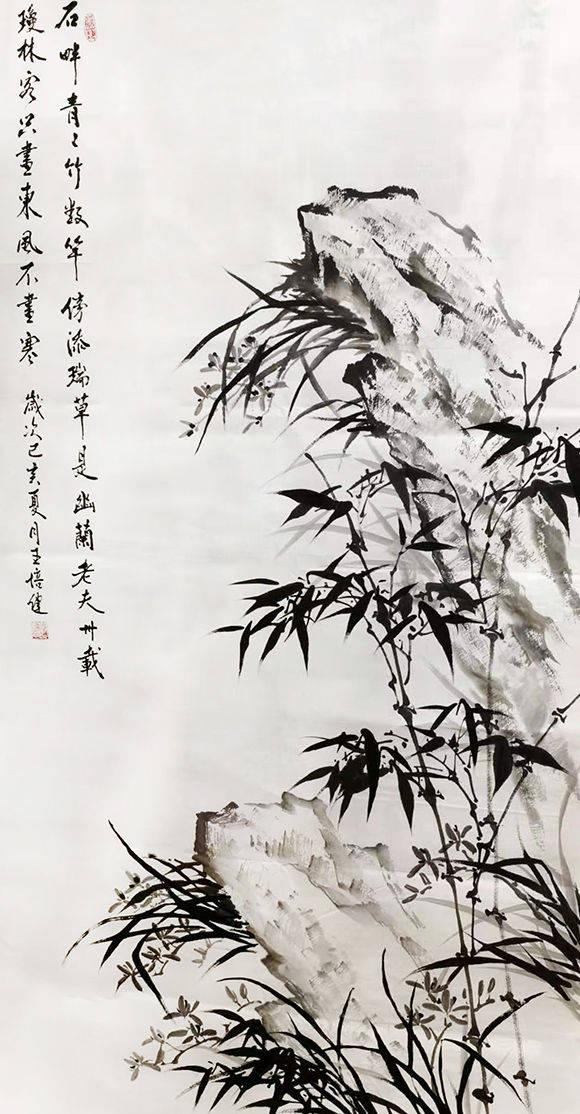 石畔青々竹数竿傍添瑞草是幽蘭老夫卅載
瓊林客只畫東風不畫寒 歲次己亥夏月王培健